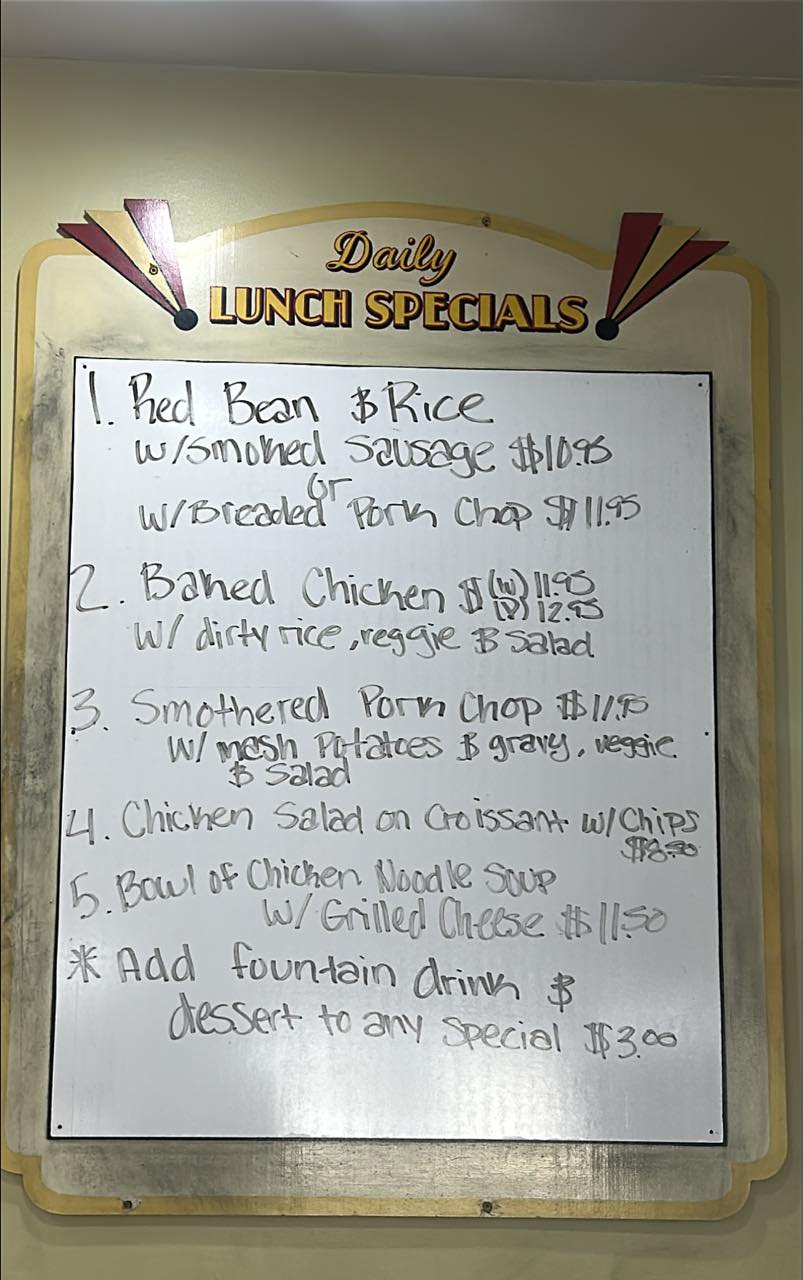 Daily
LUNCH SPECIALS
1. Red Bean & Rice
w/Smoked Sausage $10.95
or
w/Breaded Pork Chop $11.95
2. Baked Chicken $ (W) 11.95
(D) 12.95
w/ dirty rice, veggie & Salad
3. Smothered Pork Chop $11.95
w/ mash Potatoes & gravy, veggie
& Salad
4. Chicken Salad on Croissant w/Chips
$8.50
5. Bowl of Chicken Noodle Soup
w/ Grilled Cheese $11.50
* Add fountain drink &
dessert to any special $3.00